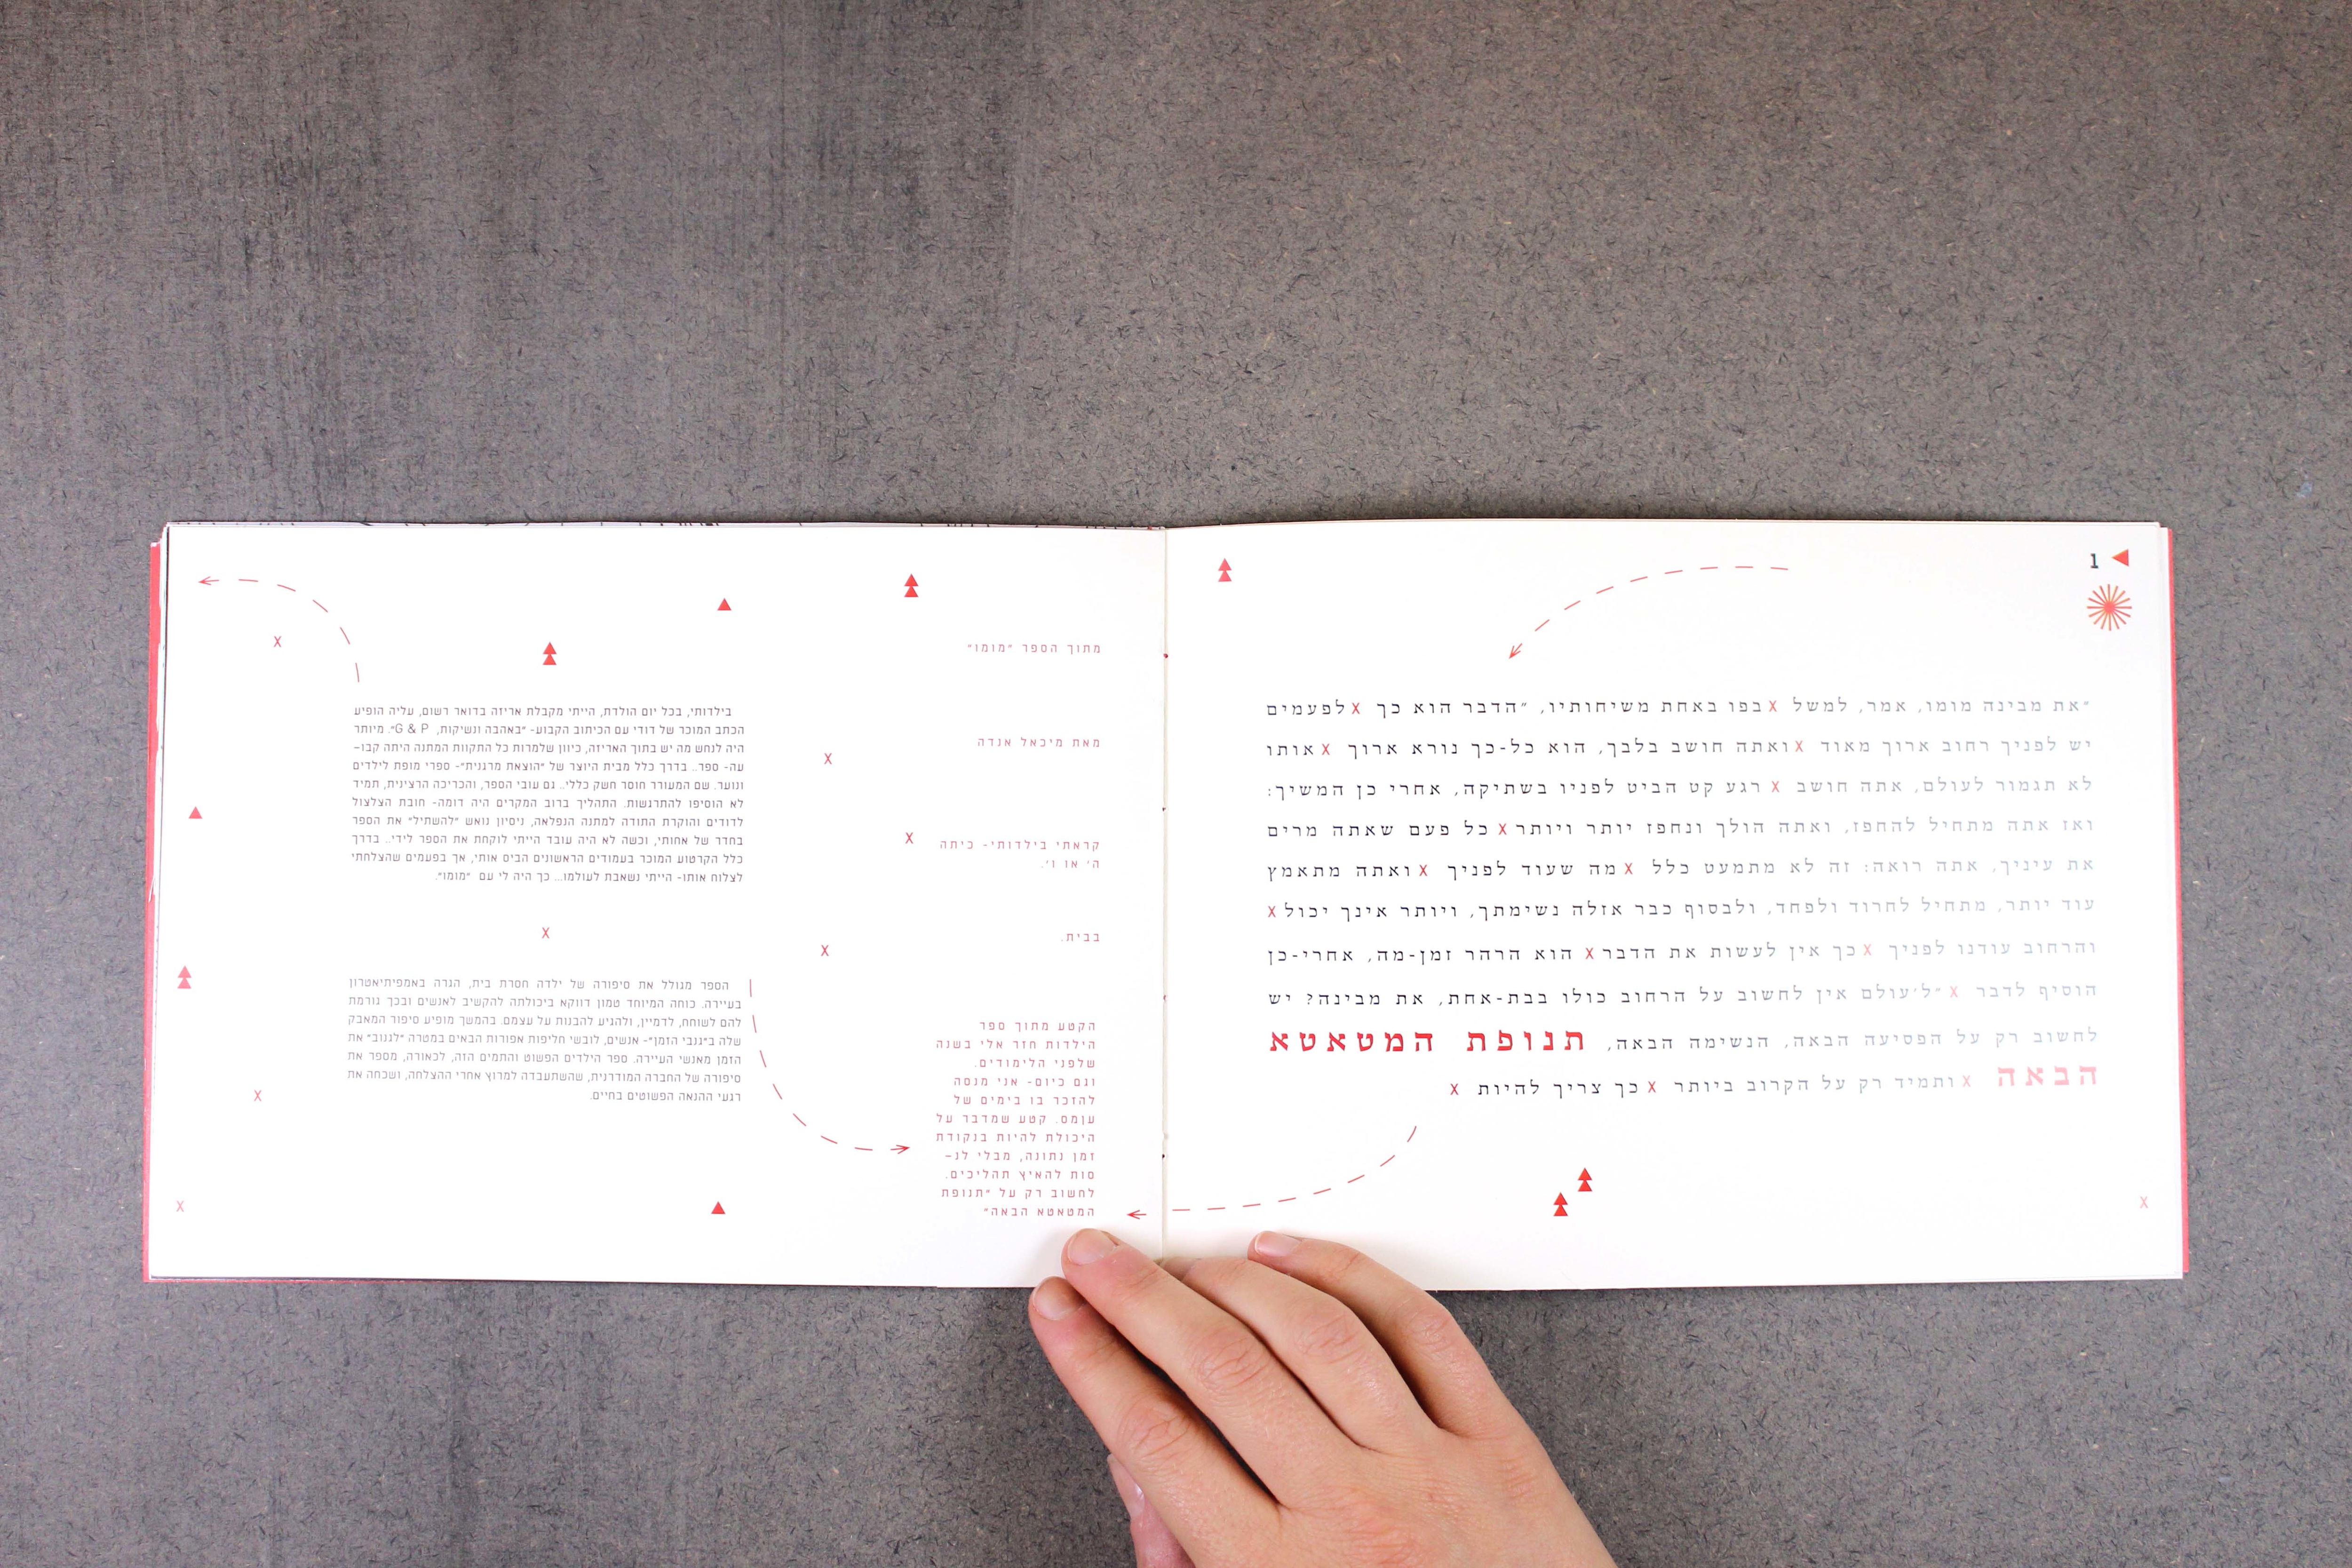 1
״את מבינה מומו, אמר, למשל x בפו באחת משיחותיו, ״הדבר הוא כך x לפעמים
יש לפניך רחוב ארוך מאוד x ואתה חושב בלבך, הוא כל-כך נורא ארוך x אותו
לא תגמור לעולם, אתה חושב x רגע קט הביט לפניו בשתיקה, אחרי כן המשיך:
ואז אתה מתחיל להחפז, ואתה הולך ונחפז יותר ויותר x כל פעם שאתה מרים
את עיניך, אתה רואה: זה לא מתמעט כלל x מה שעוד לפניך x ואתה מתאמץ
עוד יותר, מתחיל לחרוד ולפחד, ולבסוף כבר אזלה נשימתך, ויותר אינך יכול x
והרחוב עודנו לפניך x כך אין לעשות את הדבר x הוא הרהר זמן-מה, אחרי-כן
הוסיף לדבר x ״ל׳עולם אין לחשוב על הרחוב כולו בבת-אחת, את מבינה? יש
לחשוב רק על הפסיעה הבאה, הנשימה הבאה, תנופת המטאטא
הבאה x ותמיד רק על הקרוב ביותר x כך צריך להיות x
מתוך הספר ״מומו״
מאת מיכאל אנדה
קראתי בילדותי- כיתה
ה׳ או ו׳.
בבית.
הקטע מתוך ספר
הילדות חזר אלי בשנה
שלפני הלימודים.
וגם כיום- אני מנסה
להזכר בו בימים של
עומס. קטע שמדבר על
היכולת להיות בנקודת
זמן נתונה, מבלי לנ-
סות להאיץ תהליכים.
לחשוב רק על ״תנופת
המטאטא הבאה״
בילדותי, בכל יום הולדת, הייתי מקבלת אריזה בדואר רשום, עליה הופיע
הכתב המוכר של דודי עם הכיתוב הקבוע- ״באהבה ונשיקות, G & P״. מיותר
היה לנחש מה יש בתוך האריזה, כיוון שלמרות כל התקוות המתנה היתה קבו-
עה- ספר.. בדרך כלל מבית היוצר של ״הוצאת מרגנית״- ספרי מופת לילדים
ונוער. שם המעורר חוסר חשק כללי.. גם עובי הספר, והכריכה הרצינית, תמיד
לא הוסיפו להתרגשות. התהליך ברוב המקרים היה דומה- חובת הצלצול
לדודים והוקרת התודה למתנה הנפלאה, ניסיון נואש ״להשתיל״ את הספר
בחדר של אחותי, וכשזה לא היה עובד הייתי לוקחת את הספר לידי.. בדרך
כלל הקרטוע המוכר בעמודים הראשונים הביס אותי, אך בפעמים שהצלחתי
לצלוח אותו- הייתי נשאבת לעולמו... כך היה לי עם ״מומו״.
הספר מגולל את סיפורה של ילדה חסרת בית, הגרה באמפיתיאטרון
בעיירה. כוחה המיוחד טמון דווקא ביכולתה להקשיב לאנשים ובכך גורמת
להם לשוחח, לדמיין, ולהגיע להבנות על עצמם. בהמשך מופיע סיפור המאבק
שלה ב״גנבי הזמן״- אנשים, לובשי חליפות אפורות הבאים במטרה ״לגנוב״ את
הזמן מאנשי העיירה. ספר הילדים הפשוט והתמים הזה, לכאורה, מספר את
סיפורה של החברה המודרנית, שהשתעבדה למרוץ אחרי ההצלחה, ושכחה את
רגעי ההנאה הפשוטים בחיים.